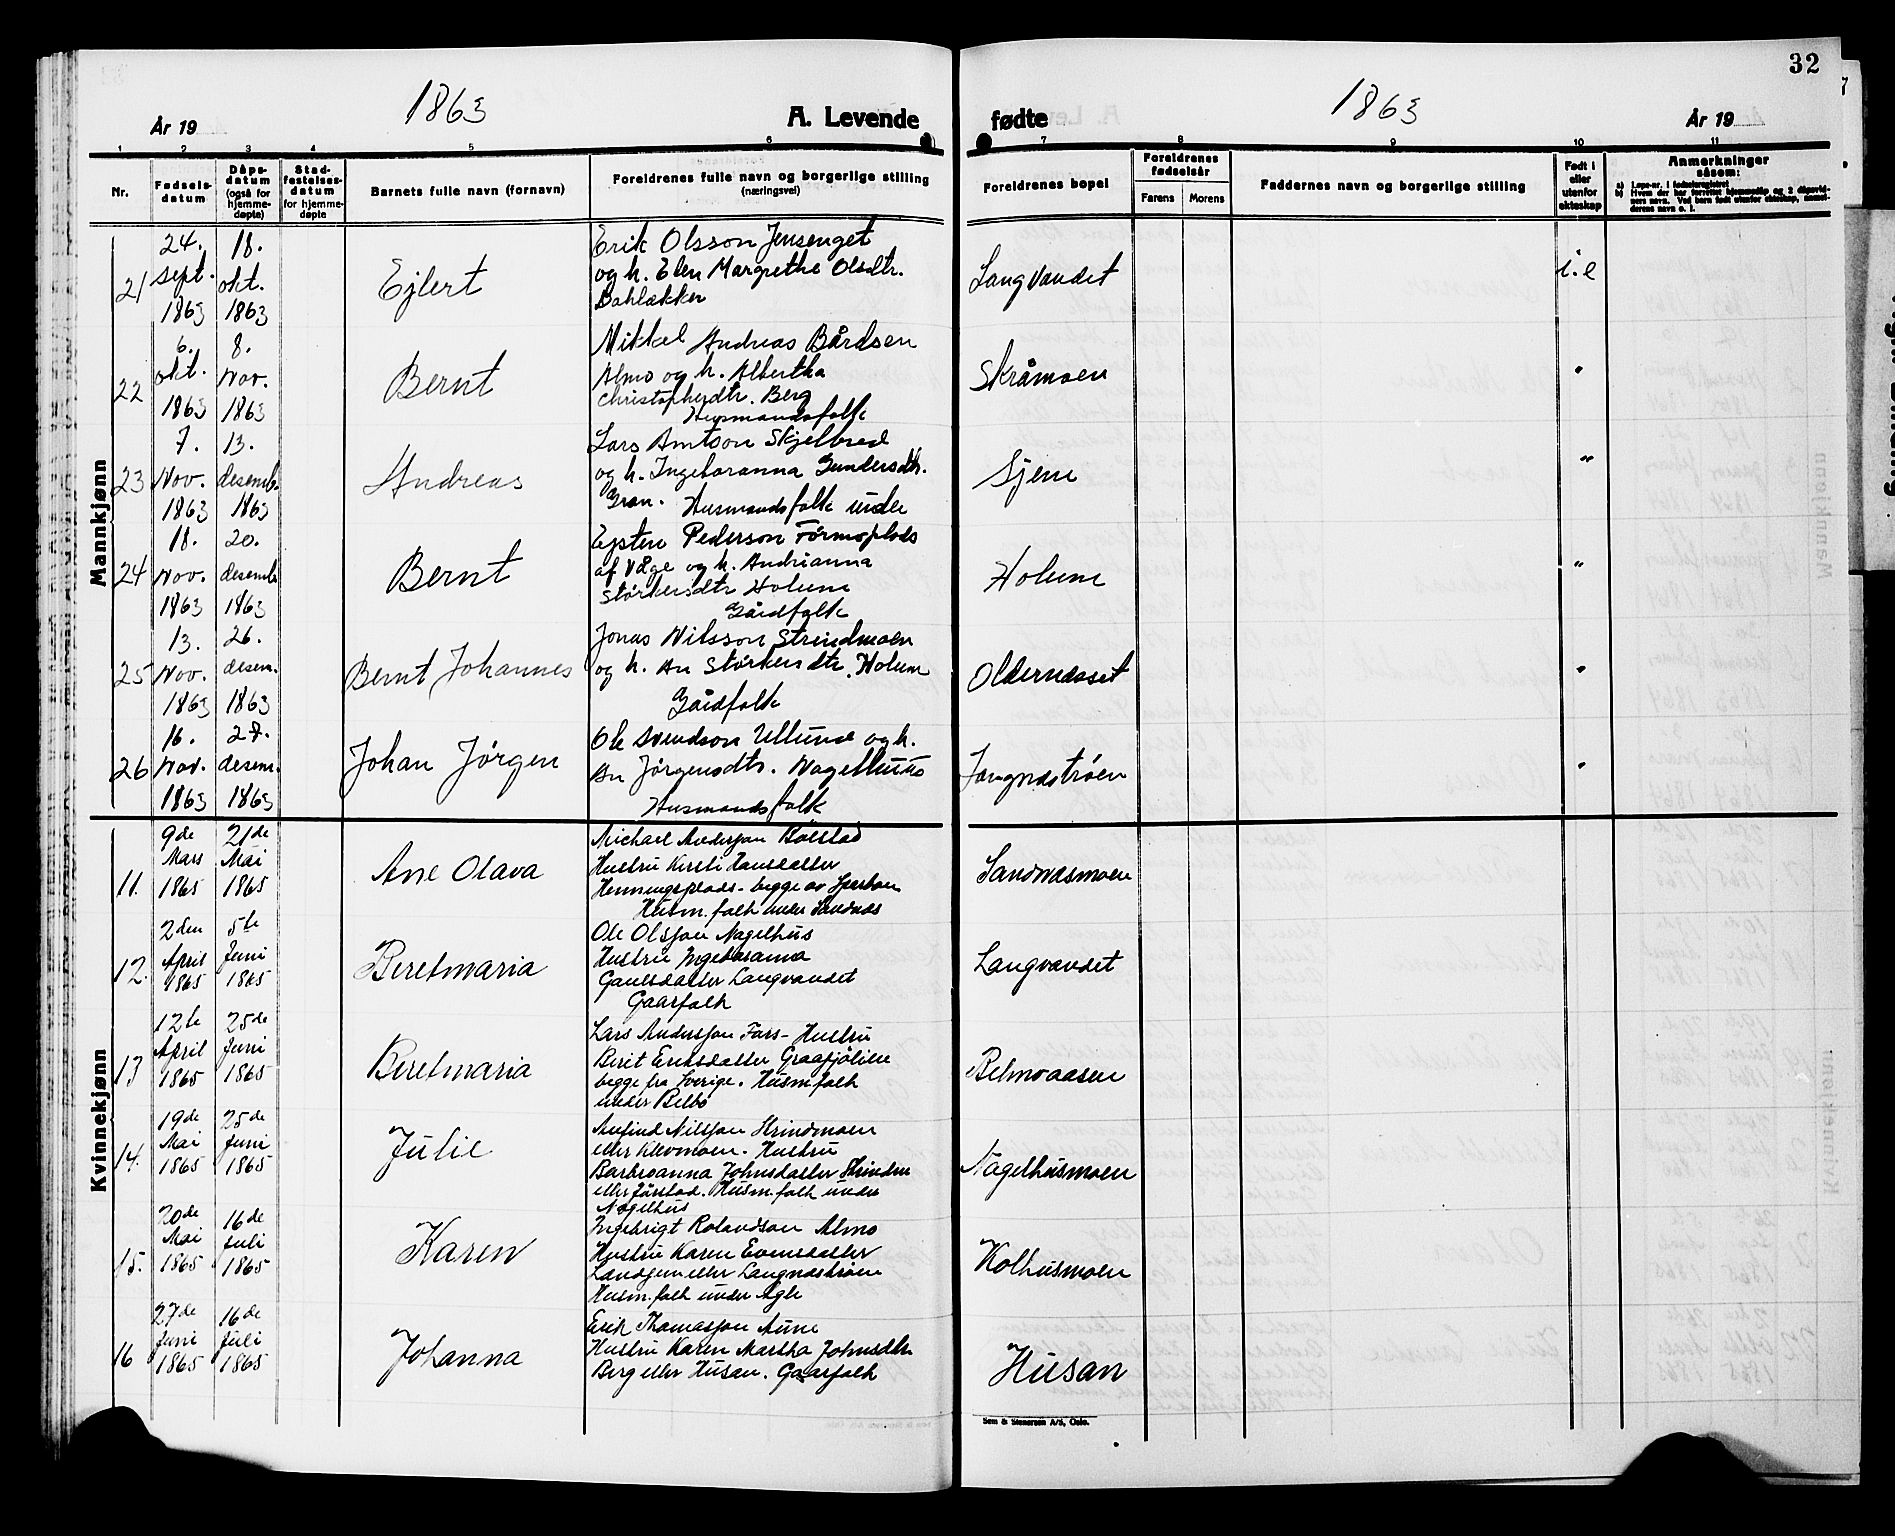 32
1863
År 19
A. Levende
fødte
1863
År 19
1 2 3 4 5 6 7 8 9 10 11
Nr.
Fødsels-
datum
Dåps-
datum
(også for
hjemme-
døpte)
Stad-
festelses-
datum
for hjemme-
døpte
Barnets fulle navn (fornavn)
Foreldrenes fulle navn og borgerlige stilling
(næringsvei)
Foreldrenes bopel
Foreldrenes
fødselsår
Farens
Morens
Faddernes navn og borgerlige stilling
Født i
eller
utenfor
ekteskap
Anmerkninger
såsom:
Mannkjønn
21
24.
sept.
1863
18.
okt.
1863
Ejlert
Erik Olsson Jensenget
og h. Elen Margrethe Olsdtr.
Bahlækker
Langvandet
i.e
22
6.
okt.
1863
8.
Nov.
1863
Bernt
Mikkel Andreas Bårdsen
Almo og h. Albertha
Christophersdtr. Berg
Husmandsfolk
Skråmoen
"
23
7.
Nov.
1863
13.
desemb.
1863
Andreas
Lars Arntson Skjelbred
og h. Ingeboranna Gundersdtr.
Gran. Husmandsfolk unde
Sjem
"
24
18.
Nov.
1863
20.
desemb.
1863
Bernt
Eysten Pederson Formoplads
af Våge og h. Andrianna
Størkersdtr Holum
Gårdfolk
Holum
"
25
13.
Nov.
1863
26.
desem.
1863
Bernt Johannes
Jonas Nilsson Strindmoen
og h. An Størkersdtr. Holum
Gårdfolk
Oldernæsset
"
26
16.
Nov.
1863
28.
desem.
1863
Johan Jørgen
Ole Svendson Ullund og h.
An Jørgensdtr. Nagelhuus
Husmandsfolk
Langnæstrøen
"
Kvinnekjønn
11.
9de
Mars
1865
21de
Mai
1865
Ane Olava
Michael Andersjon Bølstad
Hustru Kirsti Hansdatter
Henningsplads - begge av Sparboen
Husm. folk under Sandnæs
Sandnæsmoen
12.
2den
April
1865
5te
Juni
1865
Beretmaria
Ole Olsjon Nagelhus
Hustru Ingeboranna
Gaulsdatter Langvandet
Gaarfolk
Langvandet
13
12te
April
1865
25de
Juni
1865
Beretmaria
Lars Andersjon Fars - Hustru
Berit Eriksdatter Graafjølien
begge fra Sverige. Husm.folk
under Belbo
Belmoaasen
14.
19de
Mai
1865
25de
Juni
1865
Julie
Arnfind Nilsjon Strindmoen
eller Klevmoen. Hustru
Barbroanna Johnsdatter Strinden
eller Førstad. Husm.folk under
Nagelhus
Nagelhusmoen
15.
20de
Mai
1865
16de
Juli
1865
Karen
Ingebrigt Rolandson Almo
Hustru Karen Evensdatter
eller Langnæstrøen
Husm.folk under Agle
Kolhusmoen
16
27de
Juni
1865
16de
Juli
1865
Johanna
Erik Thomasjon Aune
Hustru Karen Martha Johnsdtr
Berg eller Husan. Gaarfolk
Husan
Sem & Stenersen A/S, Oslo.